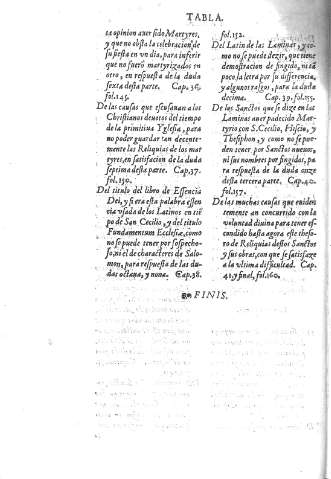 TABLA.
ta opinion auer sido Martyres,
y que no obsta la celebracion de
su fiesta en vn dia, para inferir
que no fuerō martyrizados in
otro, en respuesta de la duda
sexta desta parte. Cap. 36.
fol.145.
De las causas que escusauan a los
Christianos deuotos del tiempo
de la primitiua Yglesia, para
no poder guardar tan decente-
mente las Reliquias de los mar
tyres, en satisfacion de la duda
septima desta parte. Cap.37.
fol.150.
Del titulo del libro de Essencia
Dei, y si era esta palabra essen
cia vsada de los Latinos en tiē
po de San Cecilio, y del titulo
Fundamentum Ecclesiæ, como
no se puede tener por sospecho-
so, ni el de characteres de Salo-
mon, para respuesta de las du-
das octaua, y nona. Cap.38.
fol.152.
Del Latin de las Laminas, y co-
mo no se puede dezir, que tiene
demostracion de fingido, ni tā
poco, la letra por su differencia,
y algunos rasgos, para la duda
decima. Cap. 39. fol.155.
De los Sanctos que se dize en las
Laminas auer padecido Mar-
tyrio con S. Cecilio, Hiscio, y
Thesiphon, y como no se pue-
den tener por Sanctos nueuos,
ni sus nombres por fingidos, pa
ra respuesta de la duda onze
desta tercera parte. Cap.40.
fol.157.
De las muchas causas que euiden
temente an concurrido con la
voluntad diuina para tener es-
condido hasta agora este theso-
ro de Reliquias destos Sanctos
y sus obras, con que se satisfaze
a la vltima difficultad. Cap.
41, y final, fol.160.
FINIS.